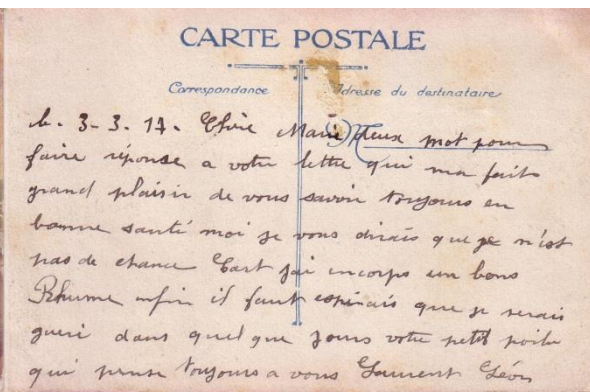 CARTE POSTALE
Correspondance Adresse du destinataire
le. 3-3. 17. Chère Marie deux mot pour
faire réponse a votre lettre qui ma fait
grand plaisir de vous savoir toujours en
bonne santé moi je vous dirais que je n'est
pas de chance Cart j'ai encorps un bons
Rhume enfin il faut espérais que je serais
gueri dans quel que jours votre petit poilu
qui pense toujours a vous Laurent Léon